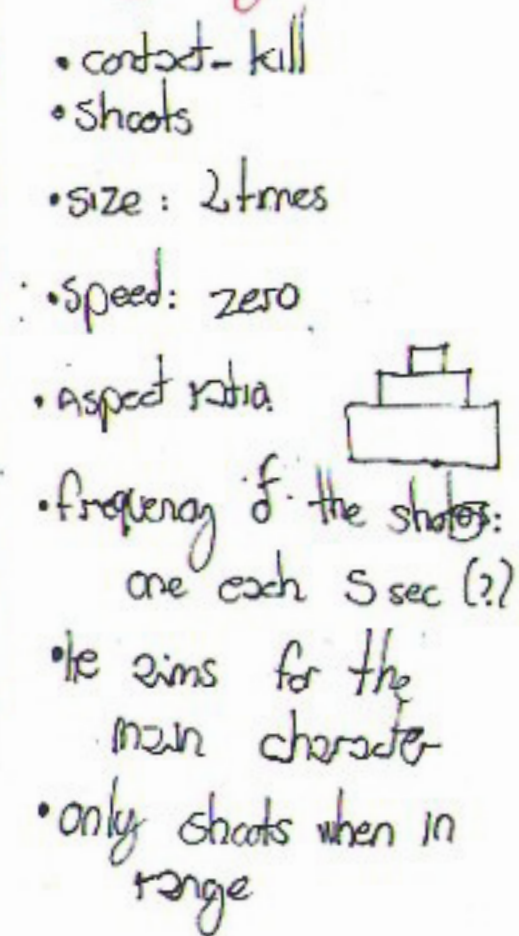 • contact-kill
• shoots
• size: 2 times
• speed: zero
• Aspect ratio
• frequency of the shots:
one each 5 sec (?)
• He aims for the
main character
• only shoots when in
range